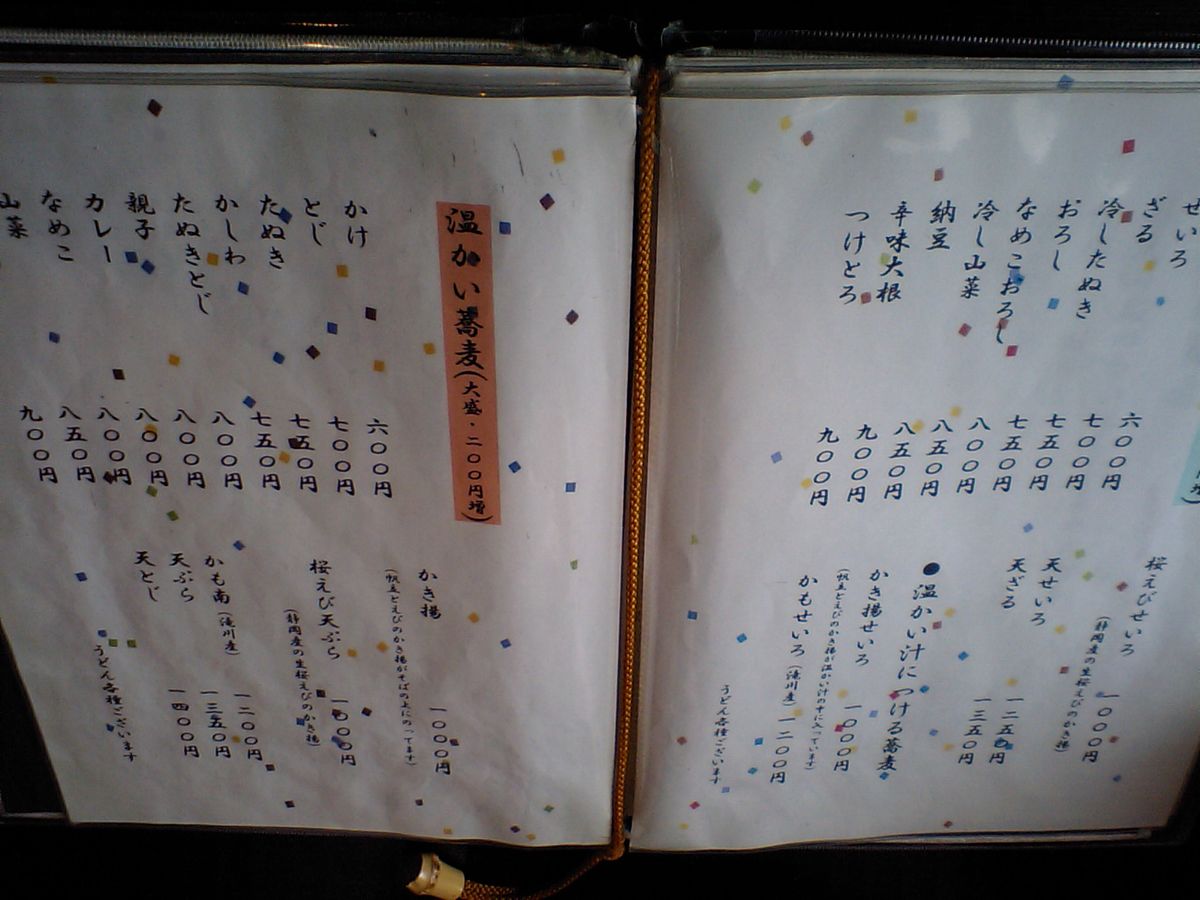 せいろ
ざる
冷したぬき
おろし
なめこおろし
冷し山菜
納豆
辛味大根
つけとろ
六〇〇円
七〇〇円
七五〇円
七五〇円
八〇〇円
八五〇円
八五〇円
九〇〇円
九〇〇円
桜えびせいろ 一〇〇〇円
(静岡産の生桜えびのかき揚)
天せいろ 一二五〇円
天ざる 一三五〇円
●温かい汁につける蕎麦
かき揚せいろ 一〇〇〇円
(帆立とえびのかき揚が温かい汁の中に入っています)
かもせいろ(滝川産) 一二〇〇円
うどん各種ございます
温かい蕎麦(大盛・二〇〇円増)
かけ
とじ
たぬき
かしわ
たぬきとじ
親子
カレー
なめこ
山菜
六〇〇円
七〇〇円
七五〇円
七五〇円
八〇〇円
八〇〇円
八〇〇円
八〇〇円
八五〇円
九〇〇円
かき揚 一〇〇〇円
(帆立とえびのかき揚がそばの上にのってます)
桜えび天ぷら 一〇〇〇円
(静岡産の生桜えびのかき揚)
かも南(滝川産) 一二〇〇円
天ぷら 一三五〇円
天とじ 一四〇〇円
うどん各種ございます